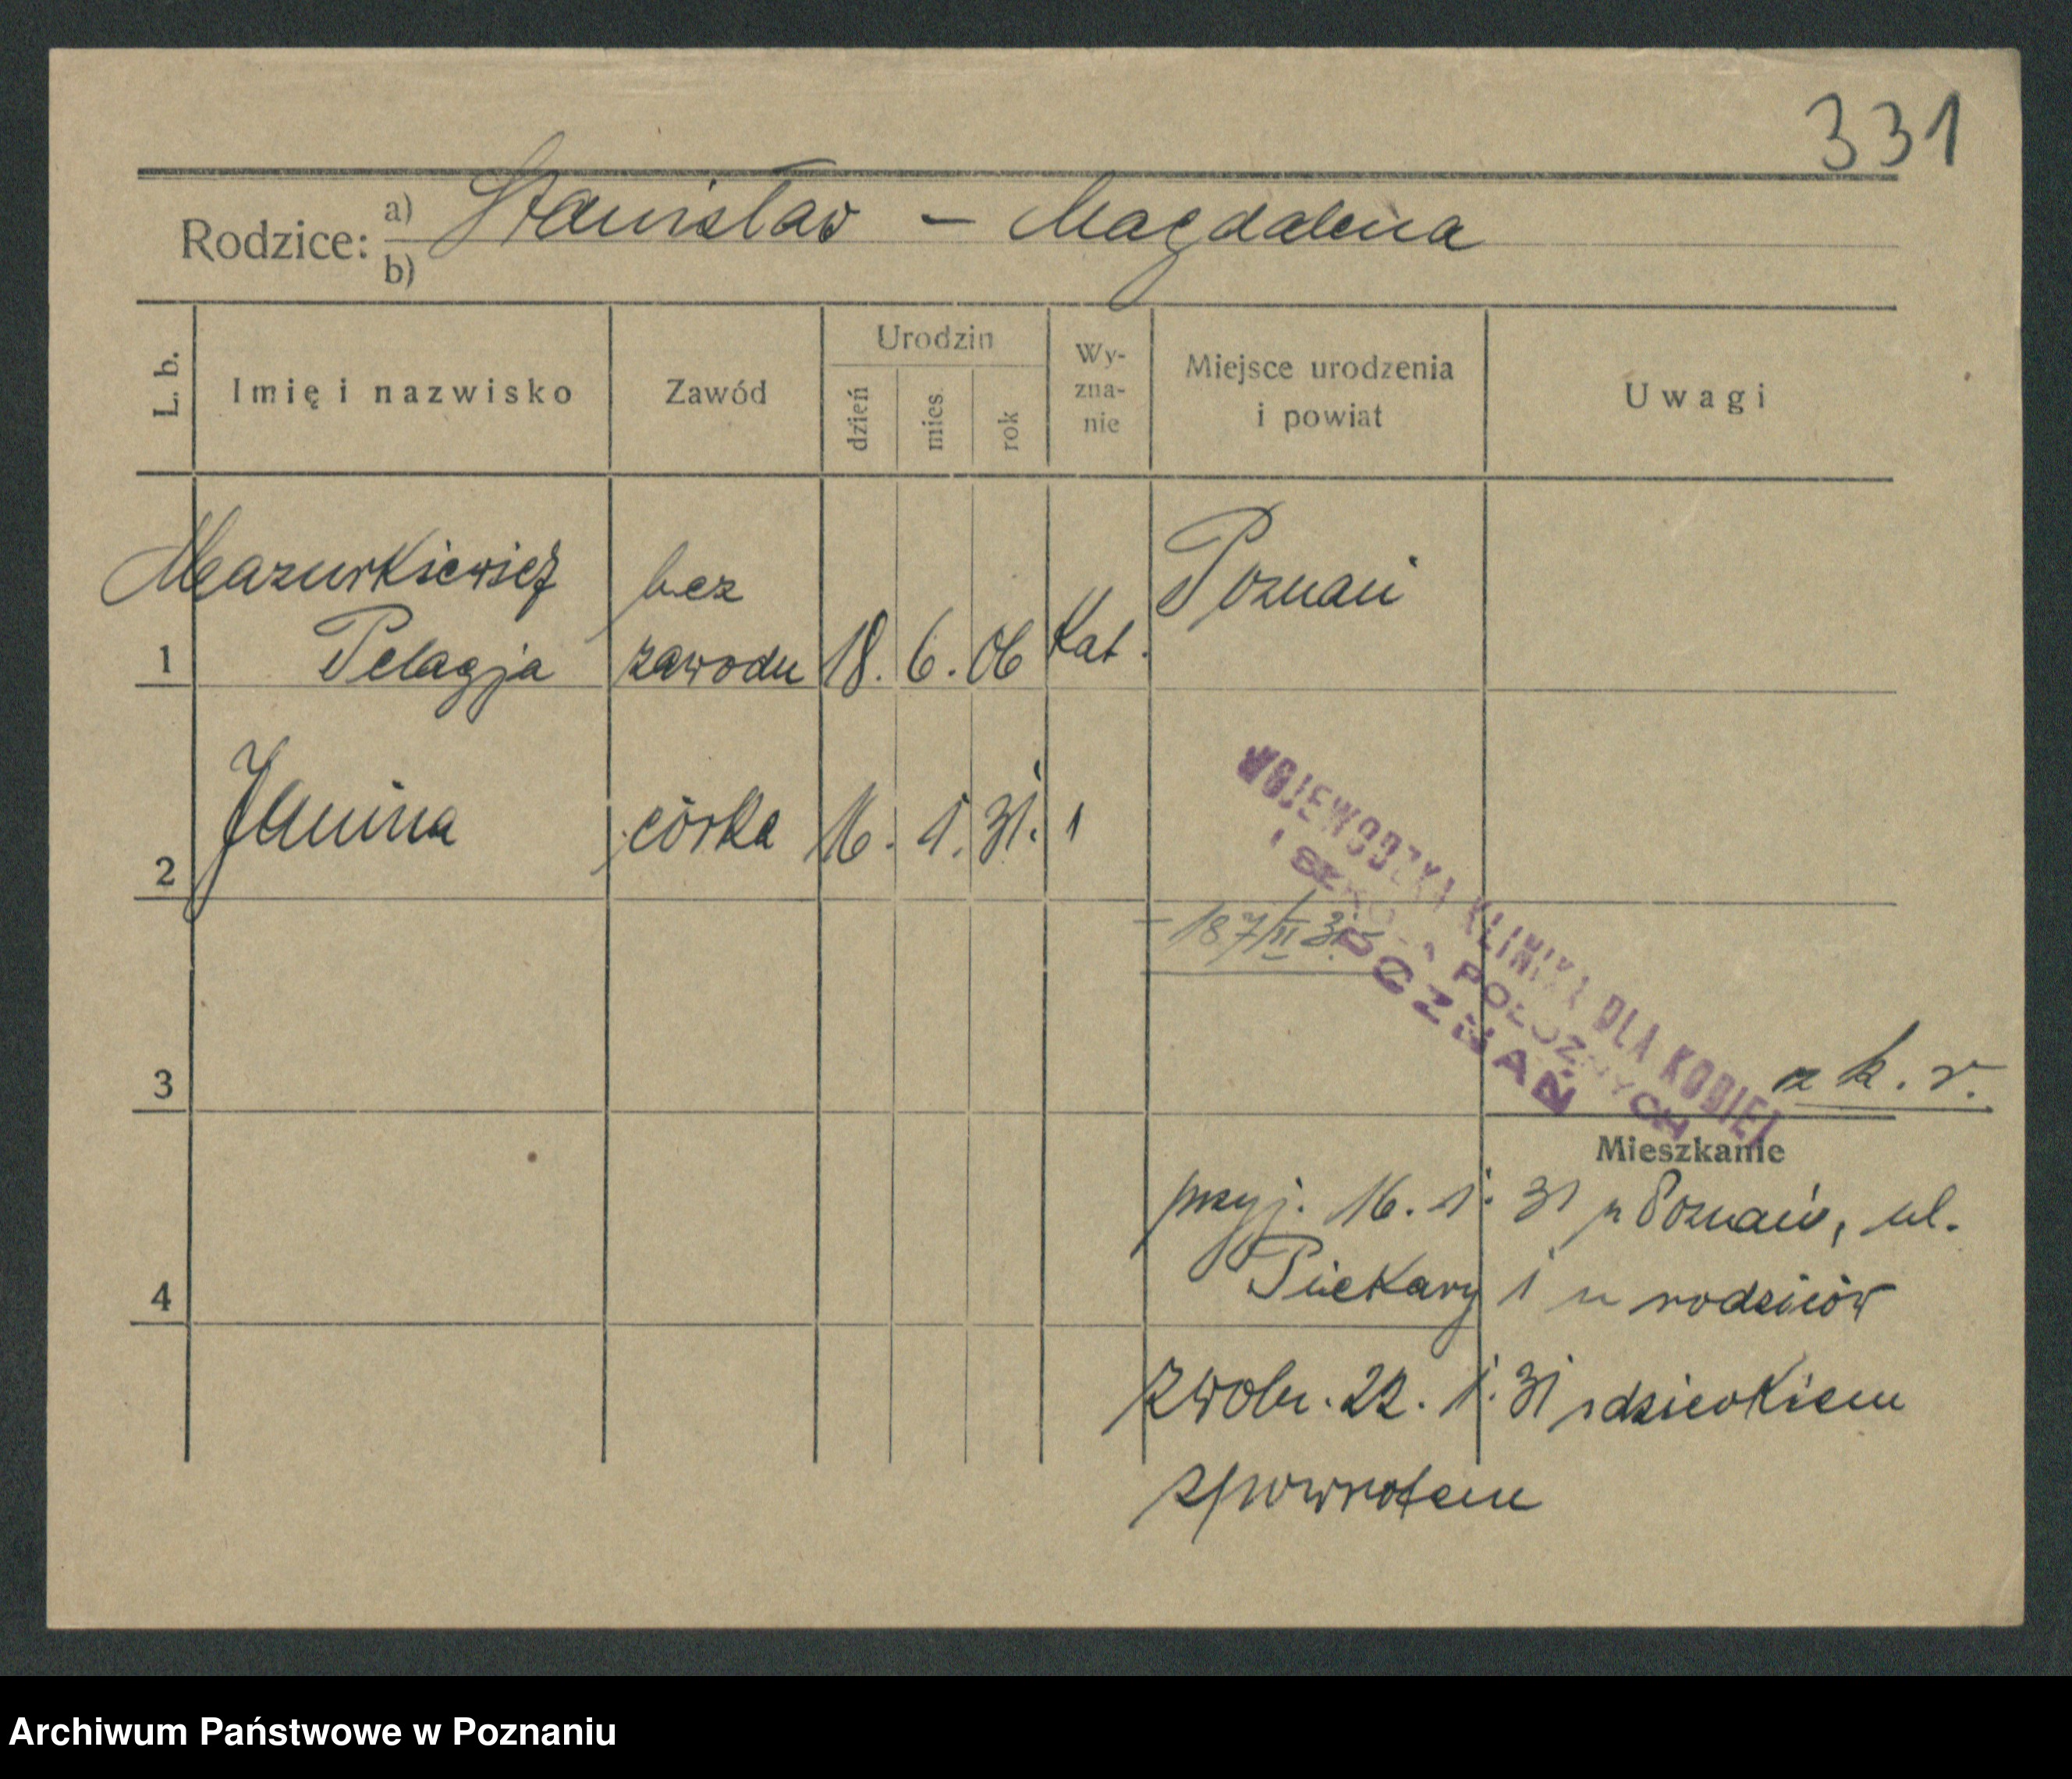 331
Rodzice: a) Stanisław – Magdalena
b)
L. b. Imię i nazwisko Zawód Urodzin dzień mies. rok Wy-zna-nie Miejsce urodzenia i powiat Uwagi
Mazurkiewicz bez Poznań
1 Pelagja zawodu 18. 6. 06 Kat.
2 Janina córka 16. 1. 31. "
WOJEWÓDZKA KLINIKA DLA KOBIET
I SZKOŁA POŁOŻNYCH
POZNAŃ
3
z k. r.
Mieszkanie
przyj. 16. 1. 31 z Poznań, ul.
4 Piekary 1 u rodziców
zwoln. 22. 1. 31 z dzieckiem
zpowrotem
Archiwum Państwowe w Poznaniu